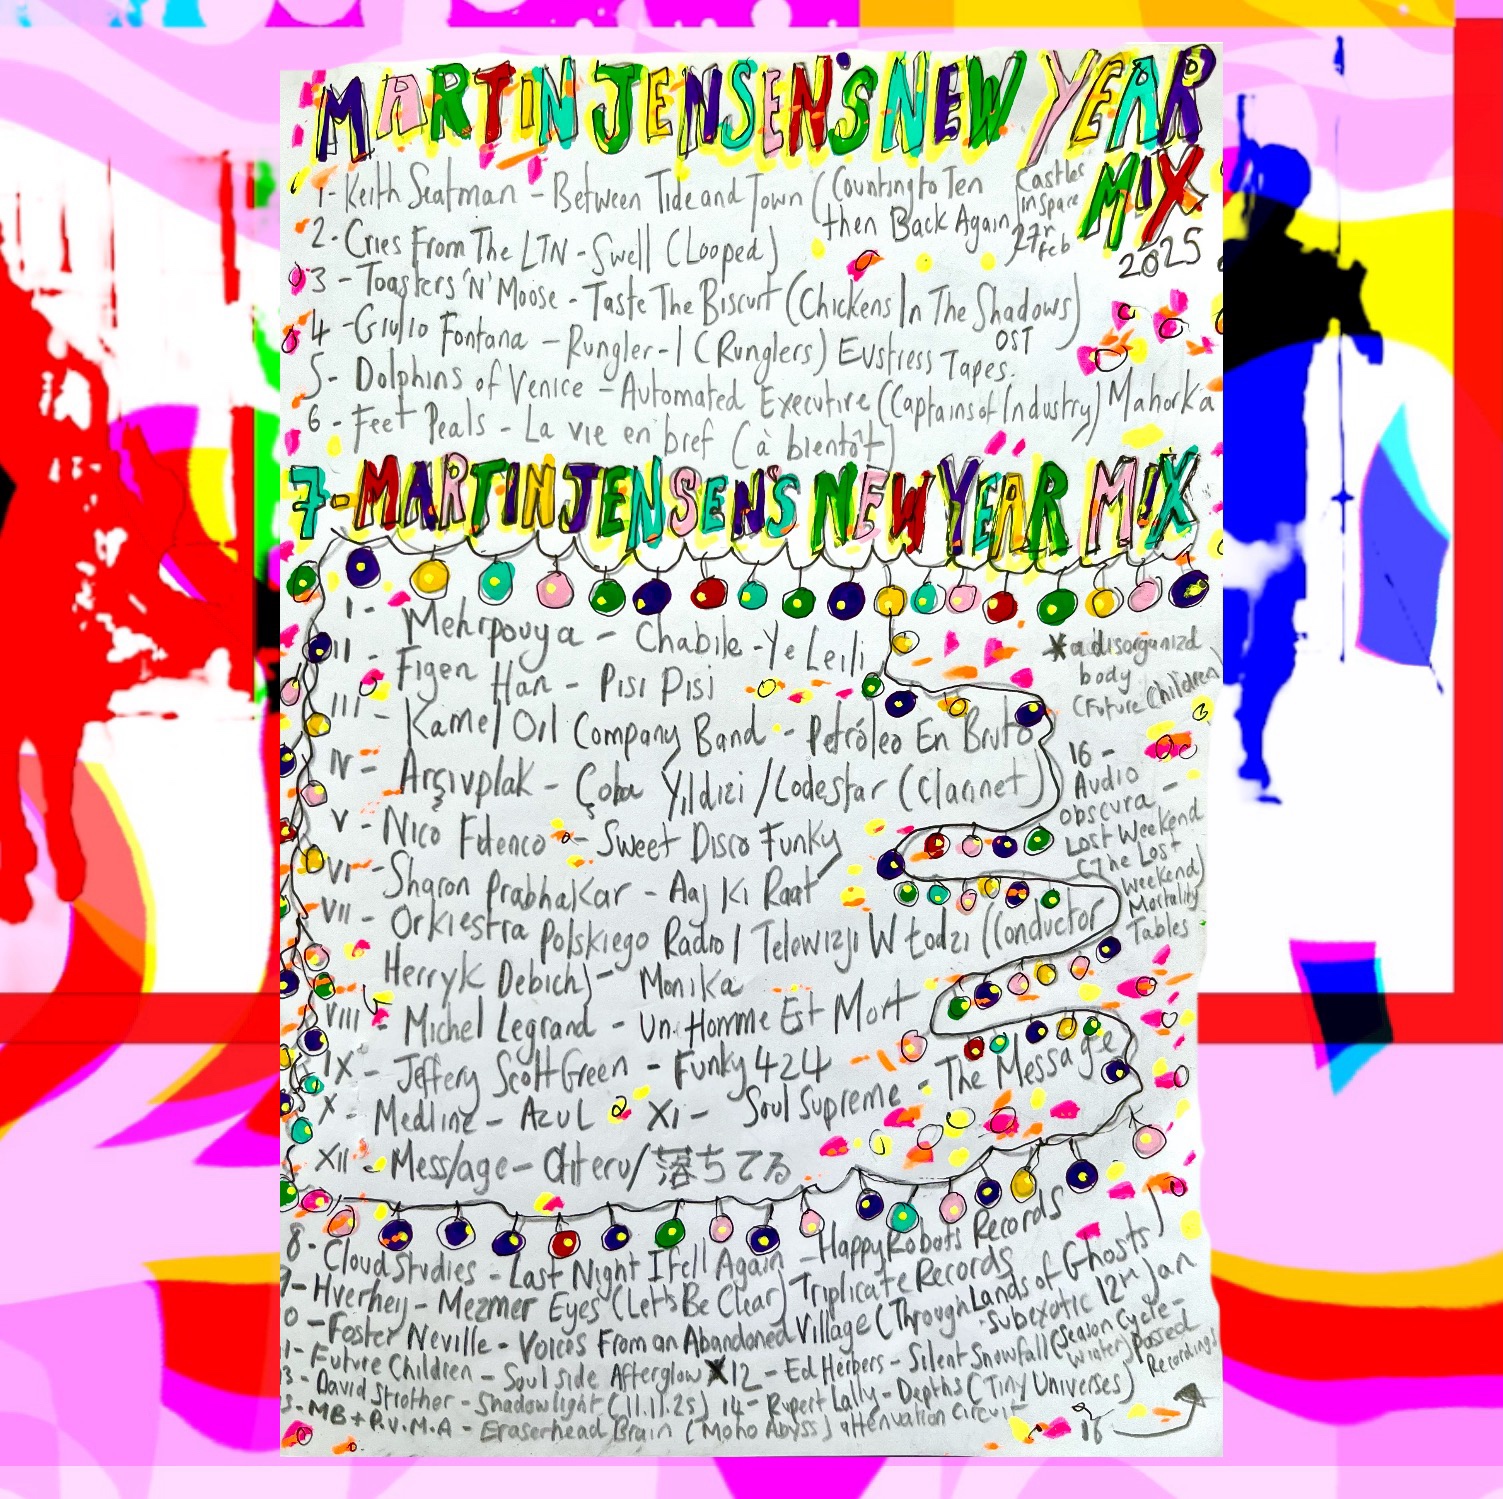 MARTIN JENSEN'S NEW YEAR
MIX
2025
1- Keith Seatman - Between Tide and Town (Counting to Ten
then Back Again)
Castles
in space
27th
Feb
2- Cries From The LTN - Swell (Looped)
3 - Toasters 'N' Moose - Taste The Biscuit (Chickens In The Shadows)
OST
4 - Giulio Fontana - Rungler-1 (Runglers) Eustress Tapes.
5- Dolphins of Venice - Automated Executive (Captains of Industry) Mahorka
6 - Feet Peals - La vie en bref (à bientôt)
7- MARTIN JENSEN'S NEW YEAR MIX
I - Mehrpouya - Chabile - Ye Leili
II - Figen Han - Pisi Pisi
III - Kamel Oil Company Band - Petróleo En Bruto
IV - Arşivplak - Çoba Yıldizi / Lodestar (Clarinet)
V - Nico Fidenco - Sweet Disco Funky
VI - Sharon Prabhakar - Aaj Ki Raat
VII - Orkiestra Polskiego Radio I Telewizji W Łodzi (Conductor
Herryk Debich) - Monika
VIII - Michel Legrand - Un Homme Est Mort
IX - Jeffery Scott Green - Funky 424
X - Medline - Azul XI - Soul Supreme - The Message
XII - Mess/age - Ohiteru/落ちてる
* a disorganizd
body
(Future Children)
16 -
Audio
Obscura -
Lost Weekend
(The Lost
Weekend)
Mortality
Tables
8- Cloud Studies - Last Night I Fell Again - Happy Robots Records
9- Hverheij - Mezmer Eyes (Let's Be Clear) Triplicate Records
0 - Foster Neville - Voices From an Abandoned Village (Through Lands of Ghosts)
- Subexotic 12th Jan
1- Future Children - Soulside Afterglow * 12 - Ed Herbers - Silent Snowfall (Season Cycle -
Winter) Passed
Recordings
3- David Strother - Shadowlight (11.11.25) 14 - Rupert Lally - Depths (Tiny Universes)
5- MB + P.U.M.A - Eraserhead Brain (Moho Abyss) attenuation circuit
16